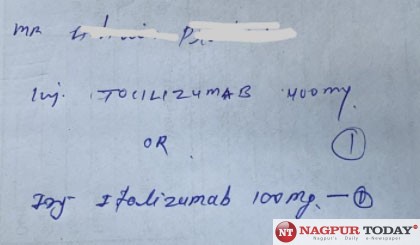 MR
Inj. TOCILIZUMAB 400mg.
OR ①
Inj Itolizumab 100mg. — ①
NT NAGPUR TODAY
Nagpur's Daily e-Newspaper